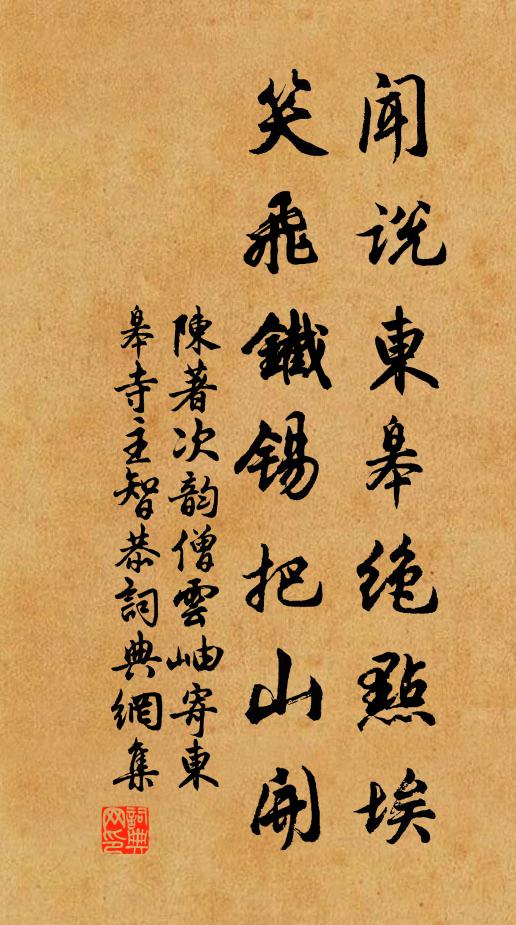 聞説東皋絶點埃
笑飛鐵錫把山開
陳著次韵僧雲岫寄東
皋寺主智恭詞典網集
詞典网印